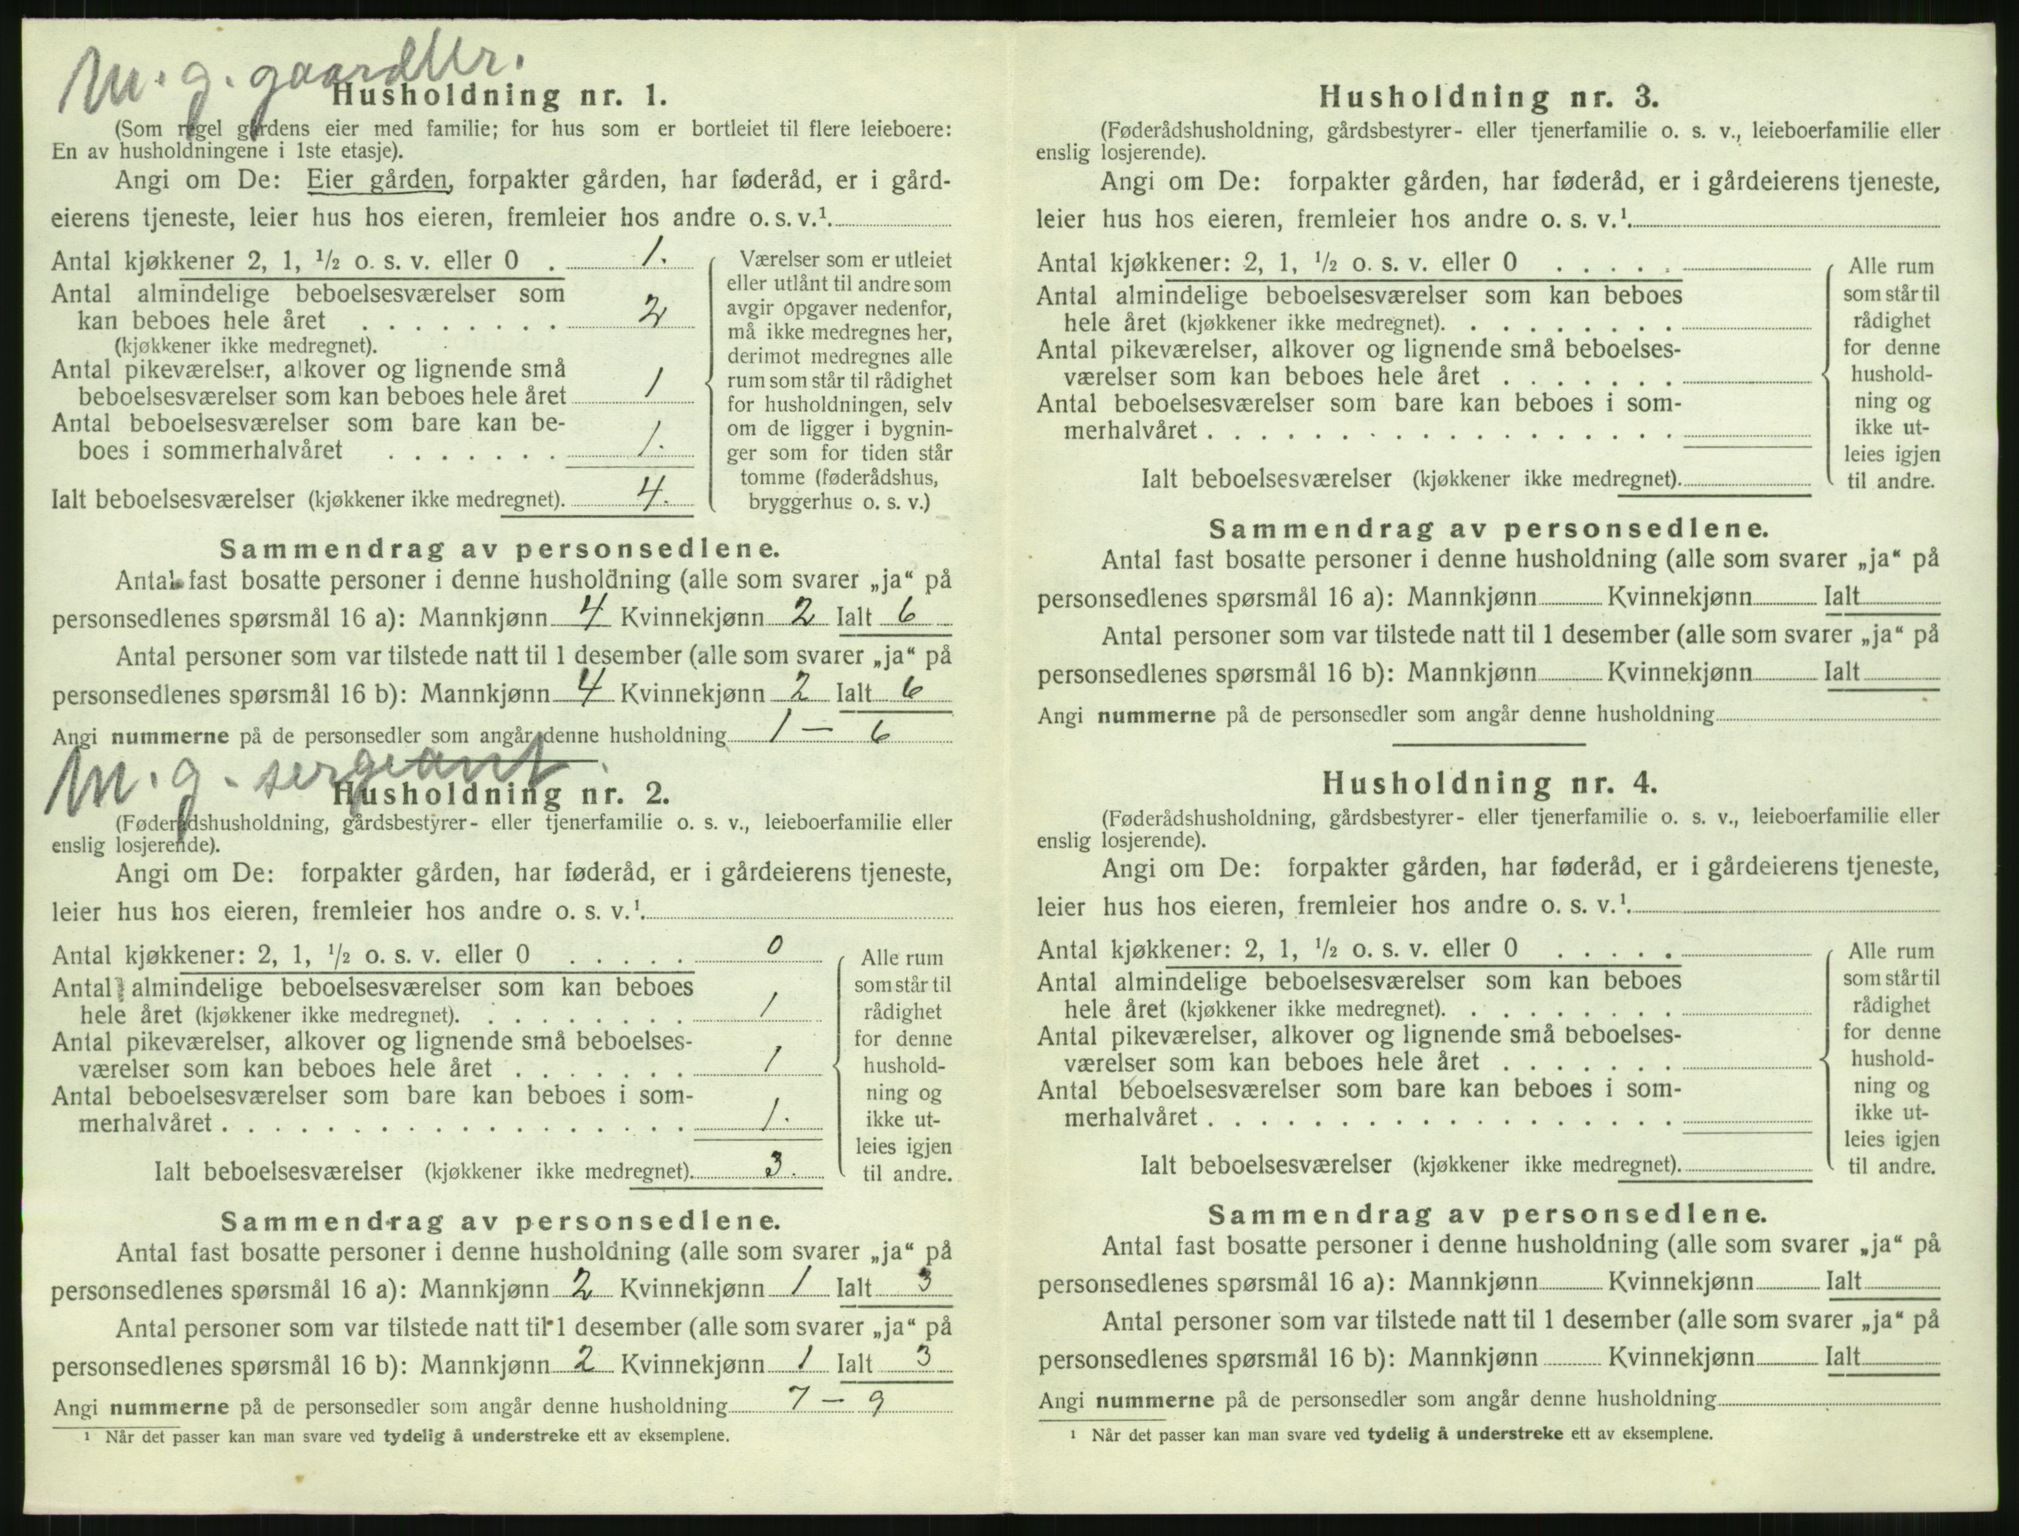 M. g. gaardbr.
Husholdning nr. 1.
(Som regel gårdens eier med familie; for hus som er bortleiet til flere leieboere:
En av husholdningene i 1ste etasje).
Angi om De: Eier gården, forpakter gården, har føderåd, er i gård-
eierens tjeneste, leier hus hos eieren, fremleier hos andre o. s. v.¹.
Antal kjøkkener 2, 1, ½ o. s. v. eller 0 . 1.
Antal almindelige beboelsesværelser som
kan beboes hele året . . . . . . . . 2
(kjøkkener ikke medregnet).
Antal pikeværelser, alkover og lignende små
beboelsesværelser som kan beboes hele året 1
Antal beboelsesværelser som bare kan be-
boes i sommerhalvåret . . . . . . . 1.
Ialt beboelsesværelser (kjøkkener ikke medregnet). 4.
Værelser som er utleiet
eller utlånt til andre som
avgir opgaver nedenfor,
må ikke medregnes her,
derimot medregnes alle
rum som står til rådighet
for husholdningen, selv
om de ligger i bygnin-
ger som for tiden står
tomme (føderådshus,
bryggerhus o. s. v.)
Sammendrag av personsedlene.
Antal fast bosatte personer i denne husholdning (alle som svarer „ja“ på
personsedlenes spørsmål 16 a): Mannkjønn 4 Kvinnekjønn 2 Ialt 6
Antal personer som var tilstede natt til 1 desember (alle som svarer „ja“ på
personsedlenes spørsmål 16 b): Mannkjønn 4 Kvinnekjønn 2 Ialt 6
Angi nummerne på de personsedler som angår denne husholdning 1 — 6
M. g. sergeant.
Husholdning nr. 2.
(Føderådshusholdning, gårdsbestyrer- eller tjenerfamilie o. s. v., leieboerfamilie eller
enslig losjerende).
Angi om De: forpakter gården, har føderåd, er i gårdeierens tjeneste,
leier hus hos eieren, fremleier hos andre o. s. v.¹.
Antal kjøkkener: 2, 1, ½ o. s. v. eller 0 . . . . . 0
Antal almindelige beboelsesværelser som kan beboes
hele året (kjøkkener ikke medregnet). . . . . . . . . 1
Antal pikeværelser, alkover og lignende små beboelses-
værelser som kan beboes hele året . . . . . . . 1
Antal beboelsesværelser som bare kan beboes i som-
merhalvåret . . . . . . . . . . . . . . . . . . 1.
Ialt beboelsesværelser (kjøkkener ikke medregnet). 3.
Alle rum
som står til
rådighet
for denne
hushold-
ning og
ikke ut-
leies igjen
til andre.
Sammendrag av personsedlene.
Antal fast bosatte personer i denne husholdning (alle som svarer „ja“ på
personsedlenes spørsmål 16 a): Mannkjønn 2 Kvinnekjønn 1 Ialt 3
Antal personer som var tilstede natt til 1 desember (alle som svarer „ja“ på
personsedlenes spørsmål 16 b): Mannkjønn 2 Kvinnekjønn 1 Ialt 3
Angi nummerne på de personsedler som angår denne husholdning 7 — 9
¹ Når det passer kan man svare ved tydelig å understreke ett av eksemplene.
Husholdning nr. 3.
(Føderådshusholdning, gårdsbestyrer- eller tjenerfamilie o. s. v., leieboerfamilie eller
enslig losjerende).
Angi om De: forpakter gården, har føderåd, er i gårdeierens tjeneste,
leier hus hos eieren, fremleier hos andre o. s. v.¹.
Antal kjøkkener: 2, 1, ½ o. s. v. eller 0 . . . . .
Antal almindelige beboelsesværelser som kan beboes
hele året (kjøkkener ikke medregnet). . . . . . . . .
Antal pikeværelser, alkover og lignende små beboelses-
værelser som kan beboes hele året . . . . . . .
Antal beboelsesværelser som bare kan beboes i som-
merhalvåret . . . . . . . . . . . . . . . . . .
Ialt beboelsesværelser (kjøkkener ikke medregnet).
Alle rum
som står til
rådighet
for denne
hushold-
ning og
ikke ut-
leies igjen
til andre.
Sammendrag av personsedlene.
Antal fast bosatte personer i denne husholdning (alle som svarer „ja“ på
personsedlenes spørsmål 16 a): Mannkjønn Kvinnekjønn Ialt
Antal personer som var tilstede natt til 1 desember (alle som svarer „ja“ på
personsedlenes spørsmål 16 b): Mannkjønn Kvinnekjønn Ialt
Angi nummerne på de personsedler som angår denne husholdning
Husholdning nr. 4.
(Føderådshusholdning, gårdsbestyrer- eller tjenerfamilie o. s. v., leieboerfamilie eller
enslig losjerende).
Angi om De: forpakter gården, har føderåd, er i gårdeierens tjeneste,
leier hus hos eieren, fremleier hos andre o. s. v.¹.
Antal kjøkkener: 2, 1, ½ o. s. v. eller 0 . . . . .
Antal almindelige beboelsesværelser som kan beboes
hele året (kjøkkener ikke medregnet). . . . . . . . .
Antal pikeværelser, alkover og lignende små beboelses-
værelser som kan beboes hele året . . . . . . .
Antal beboelsesværelser som bare kan beboes i som-
merhalvåret . . . . . . . . . . . . . . . . . .
Ialt beboelsesværelser (kjøkkener ikke medregnet).
Alle rum
som står til
rådighet
for denne
hushold-
ning og
ikke ut-
leies igjen
til andre.
Sammendrag av personsedlene.
Antal fast bosatte personer i denne husholdning (alle som svarer „ja“ på
personsedlenes spørsmål 16 a): Mannkjønn Kvinnekjønn Ialt
Antal personer som var tilstede natt til 1 desember (alle som svarer „ja“ på
personsedlenes spørsmål 16 b): Mannkjønn Kvinnekjønn Ialt
Angi nummerne på de personsedler som angår denne husholdning
¹ Når det passer kan man svare ved tydelig å understreke ett av eksemplene.